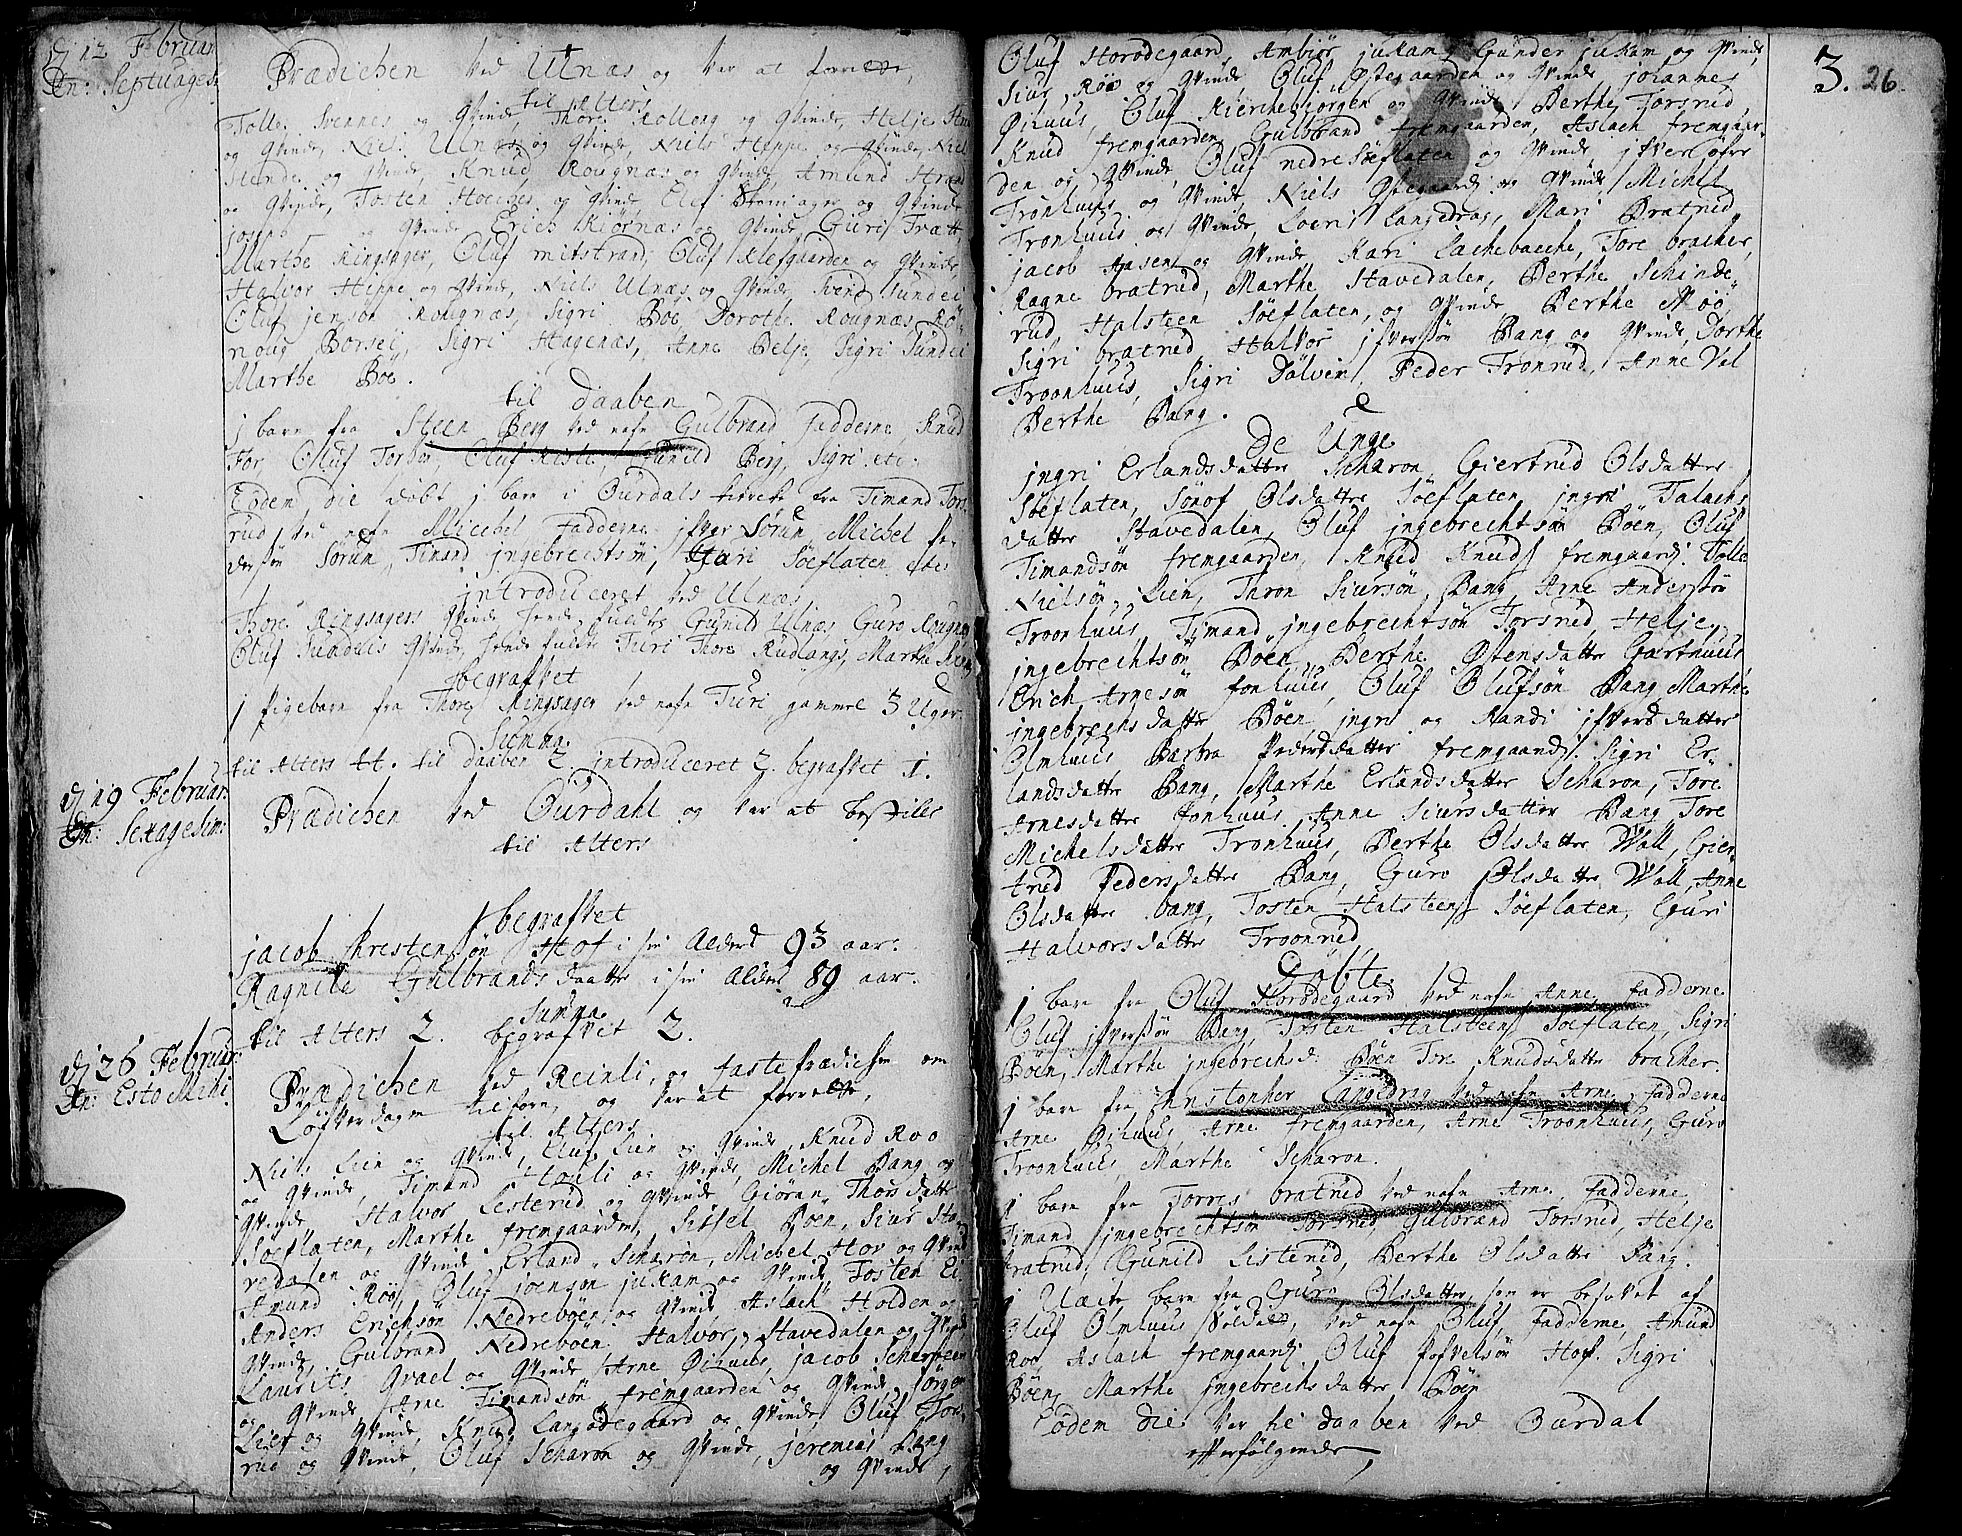 dj 12 Februar
Dn: Septuages:
Prædichen ved Ulnæs og var at forrette
til Alters
Tolle Svennes og Qvinde, Thore Rollong og Qvinde, Helje
og Qvinde, Niels Ulnæs og Qvinde, Niels Hippe og Qvinde, Niel
Sunde og Qvinde, Knud Rougnæs og Qvinde, Amund
og Qvinde, Tosten og Qvinde, Elef og Qvinde
og Qvinde Erich Kiørnæs og Qvinde, Guri
Marthe Ringsager, Oluf mitstrand, Oluf Klefgaarden og Qvinde
Halvor Hippe og Qvinde, Niels Ulnæs og Qvinde, Svend Sundei
Oluf jensøn Rougnæs, Sigri Bøe, Dorothe Rougnæs, Rø-
noug Børsei, Sigri Hagenæs, Anne Belje, Sigri Sundei
Marthe Bøe.
til daaben
j barn fra Steen Berg ved nafn Gulbrand Fadderne, Knud
For, Oluf, Oluf, Gunild Berg, Sigri etc.
Eodem die døbt j barn i Ourdals kircke fra Timand Tors-
rud, ved nafn Michel Fadderne ifver Sørum, Michel Pe-
dersøn Sørum, Timand ingebrechtsøn, Kari Søeflaten etc
introduceret ved Ulnæs
Thore Ringsagers Qvinde hende fuldte Gunild Ulnæs, Guro Rougnæs
Oluf Sundeis Qvinde, hende fulte Turi, Thore Rudlangs, Marthe
begrafvet
j Pigebarn fra Thore Ringsager ved nafn Turi, gammel 3 Uger.
Summa
til Alters 44. til daaben 2. introduceret 2. begrafvet 1.
dj 19 Februar:
Dn: Sexagesim:
Prædichen ved Ourdahl og var at bestille
til Alters
begrafvet
jacob Christensøn Hof i sin Alders 93 aar.
Ragnild Gulbrandsdaatter i sin Alder 89 aar.
Summa
til Alters 2. begrafvet 2.
dj 26 Februar:
Dn: Esto Mihi.
Prædichen ved Reinli, og fasteprædichen om
Løfverdagen tilforn, og var at forrette,
til Alters
Niels Lien og Qvinde, Oluf Lien og Qvinde, Knud Roo
og Qvinde, Timand Houli og Qvinde, Michel Bang og
Qvinde, Halvor Lesterud og Qvinde, Giøran Thorsdatter
Søeflaten, Marthe fremgaarden, Sissel Bøen, Siur Sta-
vedalen og Qvinde, Erland Scharøn, Michel Hov og Qvinde
Amund Roo, Oluf joensøn juKam og Qvinde, Tosten Ei
Anders Erichsøn Nedrebøen og Qvinde Aslach Holden og
Qvinde, Gulbrand Nedrebøen, Halvor Stavedalen og Qvinde
Laurits Qvael og Qvinde Arne Øihuus, jacob
og Qvinde Arne Timandsøn fremgaarden og Qvinde, Jørgen
Lief og Qvinde, Knud Langødegaard og Qvinde, Oluf Tors-
rud og Qvinde, Oluf Scharøn og Qvinde, jeremias Bang
og Qvinde,
3. 26.
Oluf Storødegaard, Ambiør juKam, Gunder juKam og Qvinde,
Siur Roo og Qvinde, Oluf Østegaarden og Qvinde, joiannes
Øihuus, Oluf Kierchebiørgen og Qvinde, Berthe Torsrud,
Knud fremgaarden, Gulbrand fremgaarden, Aslach fremgaar-
den og Qvinde, Oluf nedre Søeflaten og Qvinde, ifver øfre
Tronhuus og Qvinde, Niels Østegaard og Qvinde, Michel
Tronhuus og Qvinde, Loeri Langedrag, Mari Bratrud
jacob Aasen og Qvinde, Kari Lachebacche, Tore bracher,
Ragne bratrud, Marthe Stavedalen, Berthe Schinde-
rud, Halsteen Søeflaten, og Qvinde Berthe Moo
Sigri bratrud, Halvor ifversøn Bang og Qvinde, Dorthe
Troonhuus, Sigri Dølven, Peder Tronrud, Anne Vol
Berthe Bang.
De Unge
jngri Erlandsdatter Scharøn, Giertrud Olsdatter
Søeflaten, Sønof Olsdatter Søeflaten, jngri Falachs
datter Stavedalen, Oluf jngebrechtsøn Bøen, Oluf
Timandsøn fremgaarden, Knud Knuds: fremgaard: Tolle
Nielsøn Lien, Thron Siursøn Bang, Arne Andersøn
Troonhuus, Timand jngebrechtsøn Torsrud, Helje
jngebrechtsøn Bøen, Berthe Østensdatter Garthuus
Erich Arnesøn fonhuus, Oluf Olufsøn Bang, Marthe
jngebrechsdatter Bøen, jngri og Randi ifversdatter
Olmhuus Barbra Pedersdatter fremgaard: Sigri Er-
landsdatter Bang, Marthe Erlandsdatter Scharøn, Tore
Arnesdatter fonhuus, Anne Siursdatter Bang, Tore
Michelsdatter Tronhuus, Berthe Olsdatter Woll, Gier-
trud Pedersdatter Bang, Guro Olsdatter Woll, Anne
Olsdatter bang, Tosten Halsteens: Søeflaten, Guri
Halvorsdatter Troonrud
Døbte
j barn fra Oluf Storødegaard ved nafn Anne, Fadderne
Oluf ifversøn Bang, Tosten Halsteens: Søeflaten, Sigri
Bøen, Marthe jngebrechsd: Bøen Tore Knudsdatter bracher.
j barn fra Christopher Langedrag ved nafn Arne, Fadderne
Arne Øihuus, Arne fremgaarden, Arne Troonhuus, Guro
Troonhuus, Marthe Scharøn.
j barn fra Torres bratrud ved nafn Arne, Fadderne
Timand jngebrechtsøn Torsrud, Gulbrand Torsrud, Helje
bratrud, Gunild Listerud, Berthe Olsdatter Bang.
j Uægte barn fra Guro Olsdatter, som er besovet af
Oluf Olmhuus Soldat, ved nafn Oluf, Fadderne, Amund
Roo, Aslach fremgaard: Oluf Pofvelsøn Hof. Sigri
Bøen, Marthe jngebrechsdatter Bøen
Eodem die var til daaben ved Ourdal
efterfølgende,